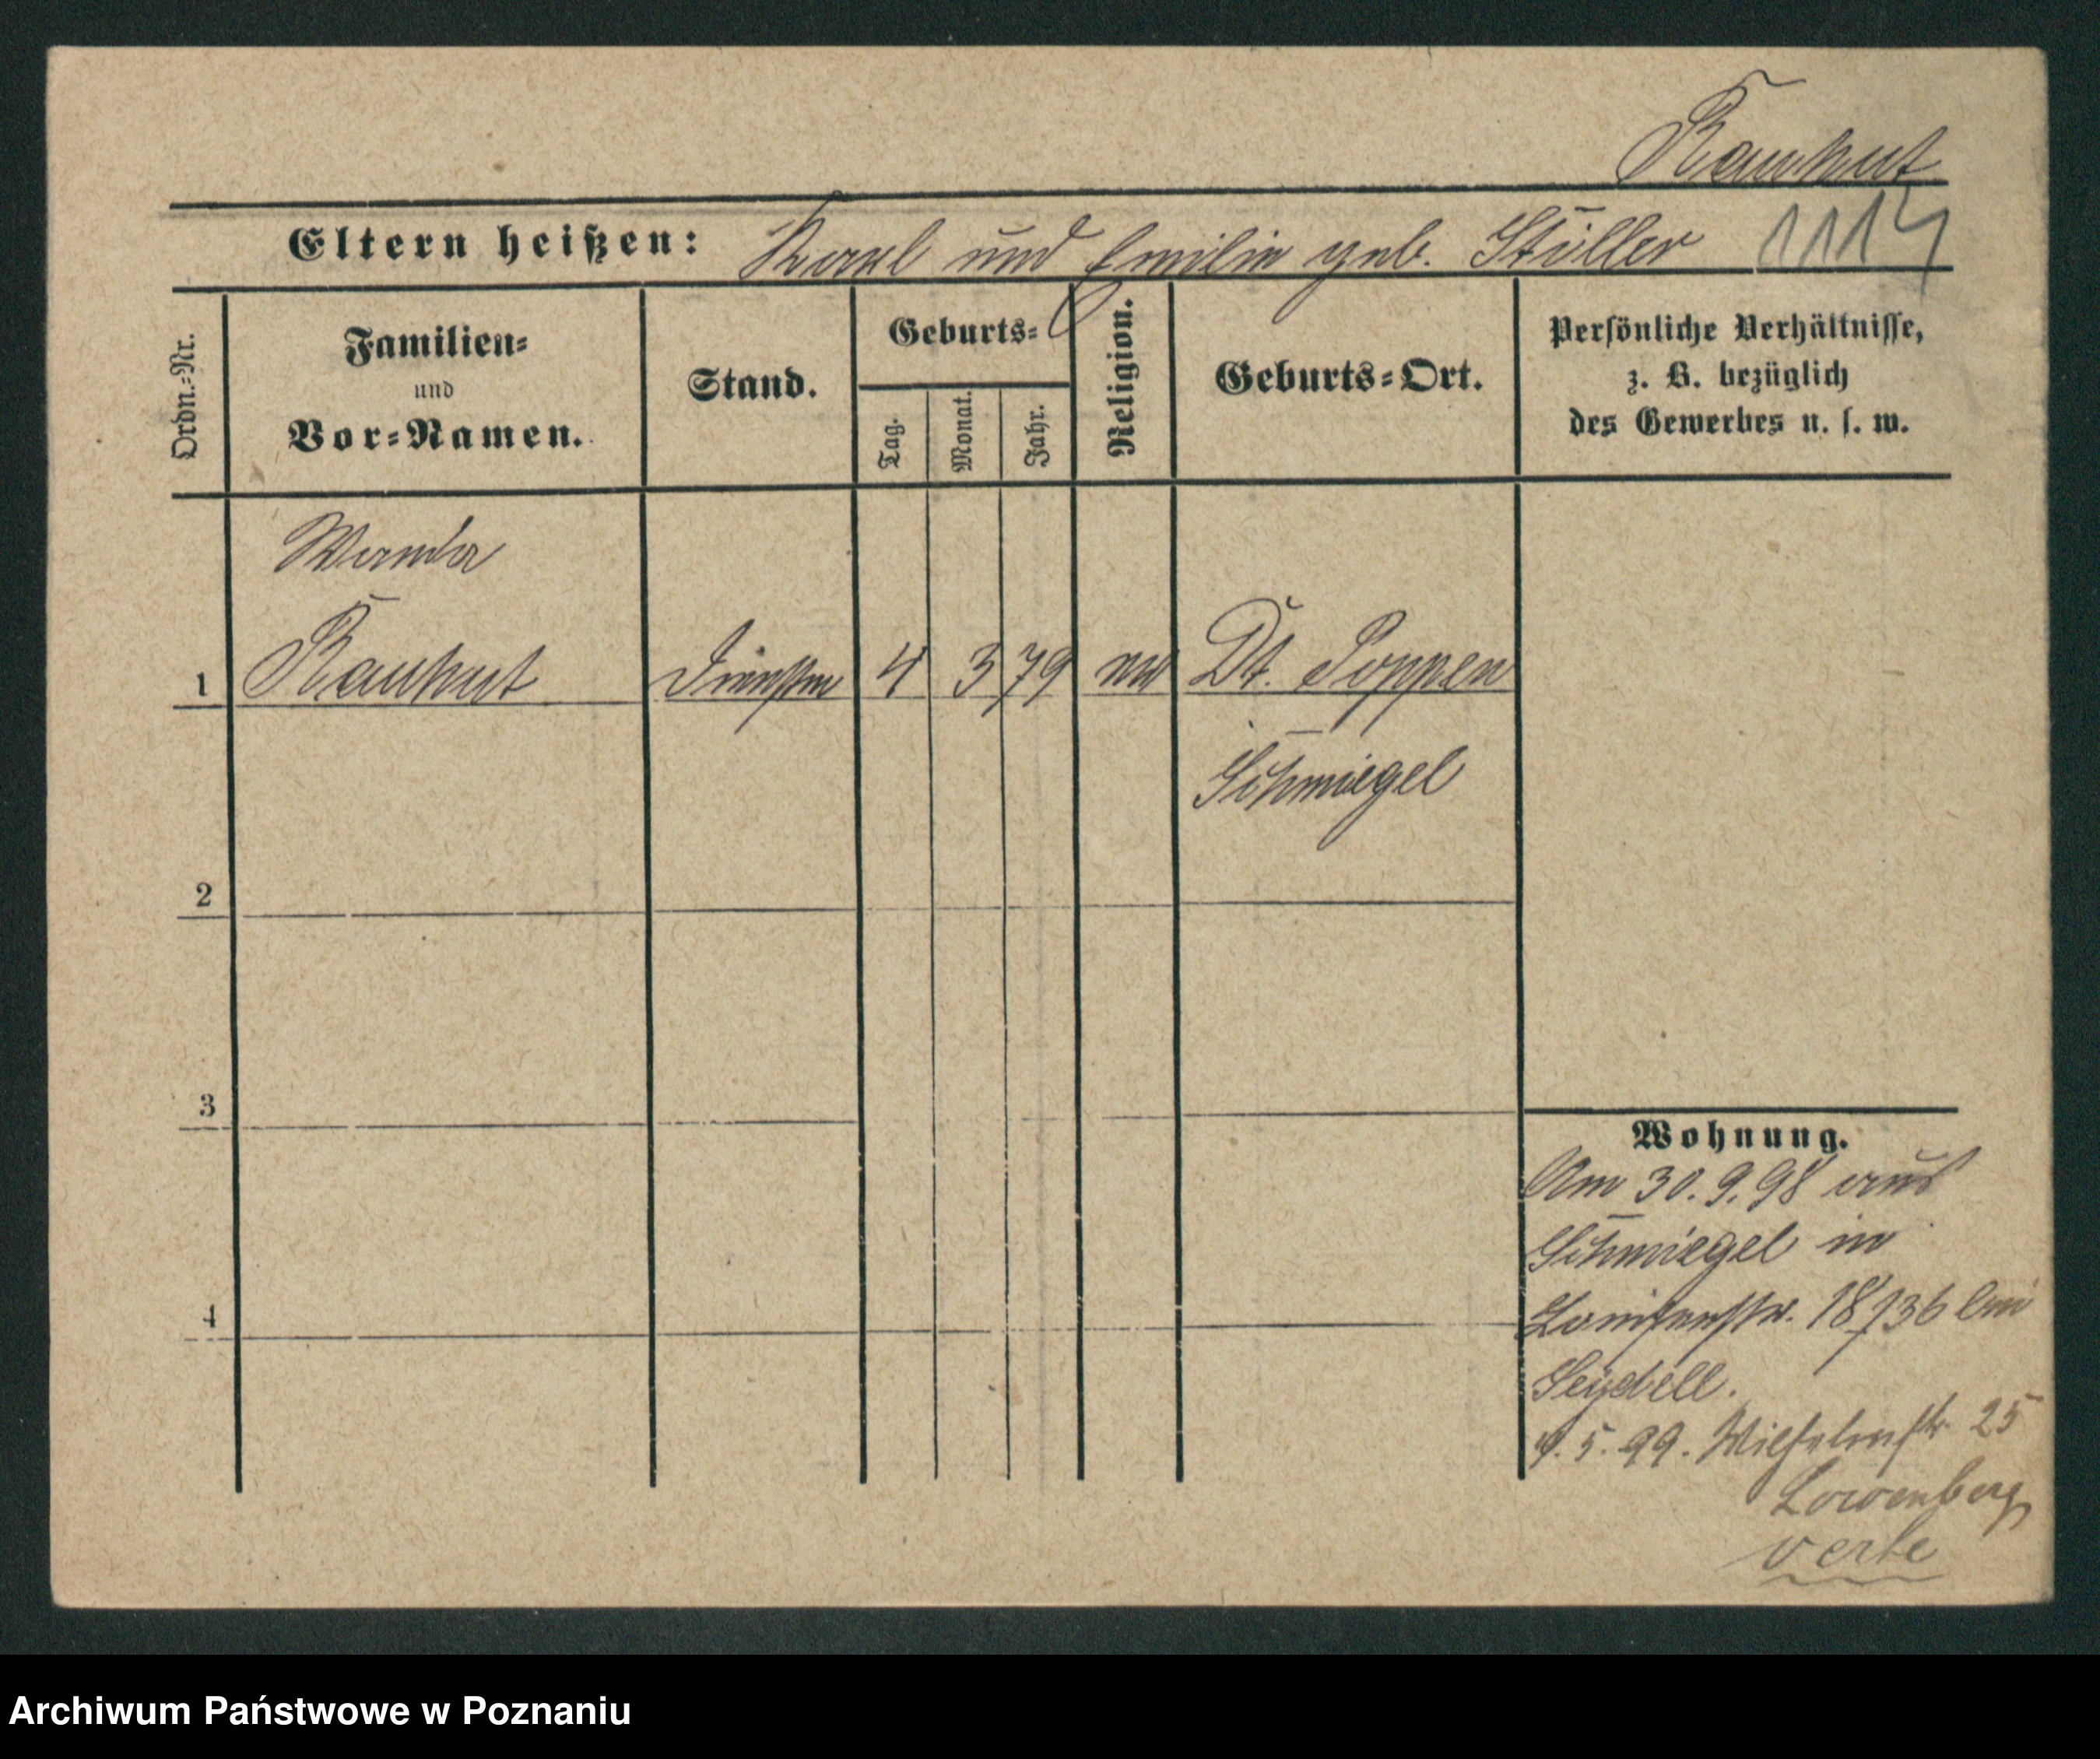 Rauhut
Eltern heißen: Karl und Emilie geb. Stiller 1114
Ordn.=Nr.
Familien=
und
Vor=Namen.
Stand.
Geburts=
Tag.
Monat.
Jahr.
Religion.
Geburts=Ort.
Persönliche Verhältnisse,
z. B. bezüglich
des Gewerbes u. s. w.
Wanda
1 Rauhut 4 3 79 Dt. Poppen
Schmiegel
2
3
4
Wohnung.
Am 30. 9. 98 aus
Schmiegel in
Louisenstr. 18/36 bei
Seydell.
5. 99. Wilhelmstr. 25
Löwenberg
verte
Archiwum Państwowe w Poznaniu